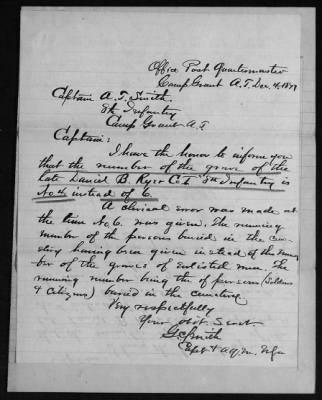 Office Post Quartermaster
Camp Grant A.T. Dec. 4, 1877
Captain A. T. Smith
8th Infantry
Camp Grant A.T.
Captain:
I have the honor to inform you
that the number of the grave of the
late Daniel B. Co. I 8th Infantry is
No 4 instead of 6.
A clerical error was made at
the time No 6, was given. The running
number of the persons buried in the cem-
etery having been given instead of the num-
ber of the graves of enlisted men. The
running number being the of persons (Soldiers
& Citizens) buried in the cemetery
Very respectfully
Your obt. Servt.
Smith
Capt & A.Q.M.